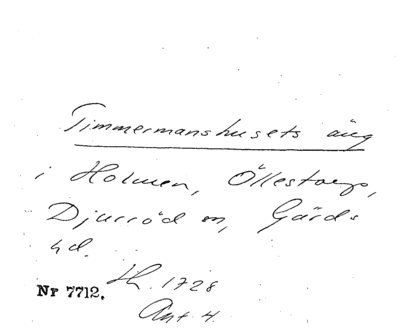 Timmermanshusets äng
i Holmen, Öllestorp,
Djurröd sn, Gärds
hd.
Lh. 1728
Nr 7712.
Ant. 4.